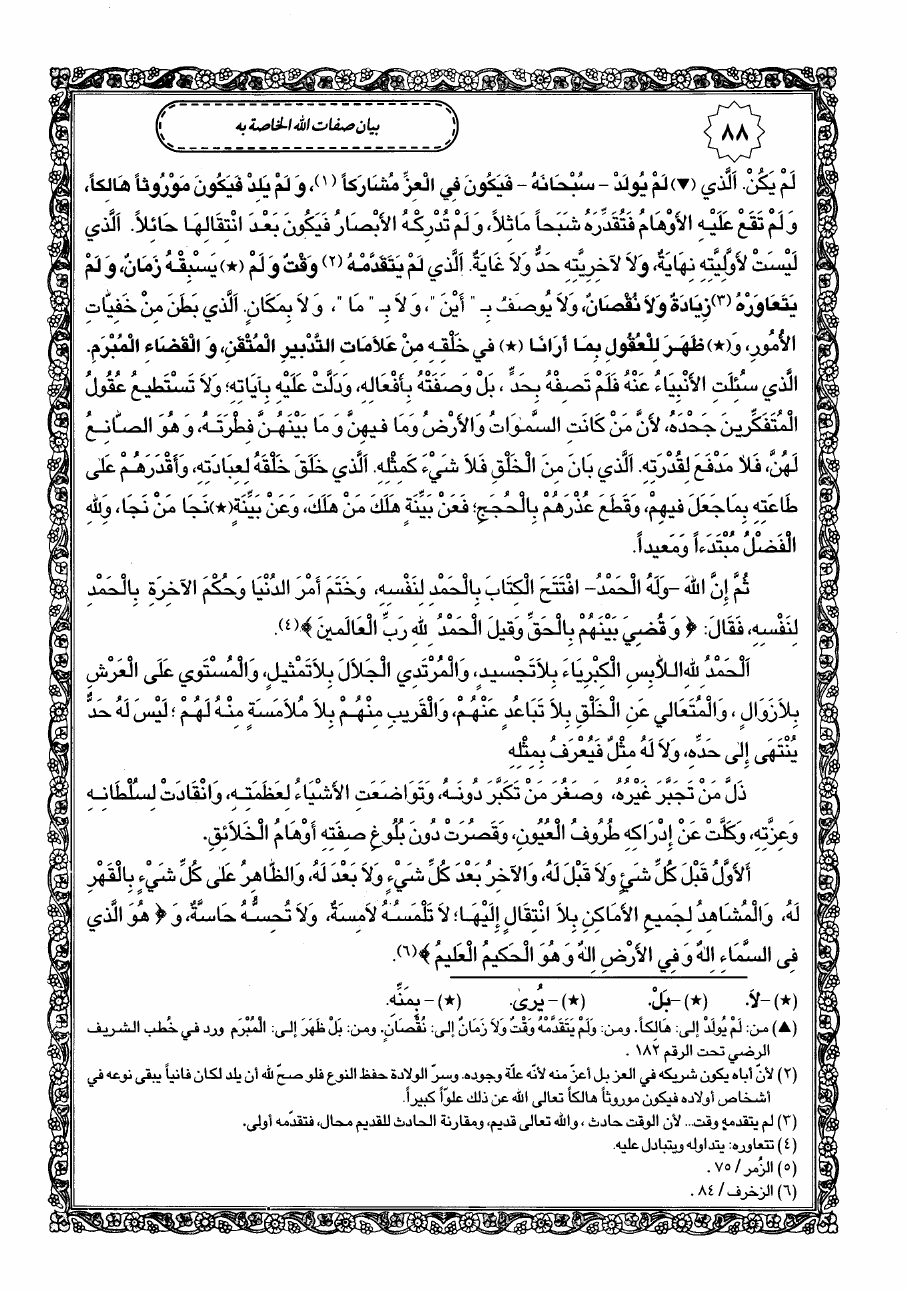 ٨٨
بيان صفات الله الخاصة به
لَمْ يَكُنْ. اَلَّذي (▼) لَمْ يُولَدْ – سُبْحَانَهُ – فَيَكُونَ فِي الْعِزِّ مُشَارَكاً (١)، وَ لَمْ يَلِدْ فَيَكُونَ مَوْرُوثاً هَالِكاً،
وَ لَمْ تَقَعْ عَلَيْهِ الأَوْهَامُ فَتُقَدِّرَهُ شَبَحاً مَاثلاً، وَ لَمْ تُدْرِكْهُ الأَبْصَارُ فَيَكُونَ بَعْدَ انْتِقَالِهَا حَائلاً. اَلَّذي
لَيْسَتْ لأَوَّلِيَّتِهِ نِهَايَةٌ، وَلاَ لآخِرِيَّتِهِ حَدٌّ وَلاَ غَايَةٌ. اَلَّذي لَمْ يَتَقَدَّمْهُ (٢) وَقْتٌ وَ لَمْ (★) يَسبِقْهُ زَمَانٌ، وَ لَمْ
يَتَعَاوَرْهُ (٣) زِيَادَةٌ وَلاَ نُقْصَانٌ، وَلاَ يُوصَفُ بِـ " أَيْنَ "، وَ لاَ بِـ " مَا "، وَ لاَ بِمَكَانٍ. اَلَّذي بَطَنَ مِنْ خَفِيَّاتِ
الأُمُورِ، وَ(★) ظَهَرَ لِلْعُقُولِ بِمَا أَرَانَا (★) في خَلْقِهِ مِنْ عَلاَمَاتِ التَّدْبيرِ الْمُتْقَنِ، وَ الْقَضَاءِ الْمُبْرَمِ.
الَّذي سُئلَتِ الأَنْبِيَاءُ عَنْهُ فَلَمْ تَصِفْهُ بِحَدٍّ، بَلْ وَصَفَتْهُ بِأَفْعَالِهِ، وَدَلَّتْ عَلَيْهِ بِآيَاتِهِ؛ وَلاَ تَسْتَطيعُ عُقُولُ
الْمُتَفَكِّرينَ جَحْدَهُ، لأَنَّ مَنْ كَانَتِ السَّمٰوَاتُ وَالأَرْضُ وَمَا فيهِنَّ وَ مَا بَيْنَهُنَّ فِطْرَتَهُ، وَ هُوَ الصَّانِعُ
لَهُنَّ، فَلاَ مَدْفَعَ لِقُدْرَتِهِ. اَلَّذي بَانَ مِنَ الْخَلْقِ فَلاَ شَيْءَ كَمِثْلِهِ. اَلَّذي خَلَقَ خَلْقَهُ لِعِبَادَتِهِ، وَأَقْدَرَهُمْ عَلى
طَاعَتِهِ بِمَا جَعَلَ فيهِمْ، وَقَطَعَ عُذْرَهُمْ بِالْحُجَجِ؛ فَعَنْ بَيِّنَةٍ هَلَكَ مَنْ هَلَكَ، وَعَنْ بَيِّنَةٍ(★) نَجَا مَنْ نَجَا، وَلِلّٰهِ
الْفَضْلُ مُبْتَدَءاً وَ مَعيداً.
ثُمَّ إِنَّ اللهَ –وَلَهُ الْحَمْدُ– افْتَتَحَ الْكِتَابَ بِالْحَمْدِ لِنَفْسِهِ، وَخَتَمَ أَمْرَ الدُّنْيَا وَحُكْمَ الآخِرَةِ بِالْحَمْدِ
لِنَفْسِهِ، فَقَالَ: ﴿ وَ قُضِيَ بَيْنَهُمْ بِالْحَقِّ وَقيلَ الْحَمْدُ لِلّٰهِ رَبِّ الْعَالَمينَ ﴾(٤).
اَلْحَمْدُ لِلّٰهِ اللاَّبِسِ الْكِبْرِيَاءَ بِلاَ تَجْسيدٍ، وَالْمُرْتَدِي الْجَلاَلَ بِلاَ تَمْثيلٍ، وَالْمُسْتَوي عَلَى الْعَرْشِ
بِلاَ زَوَالٍ، وَالْمُتَعَالي عَنِ الْخَلْقِ بِلاَ تَبَاعُدٍ عَنْهُمْ، وَالْقَريبِ مِنْهُمْ بِلاَ مُلاَمَسَةٍ مِنْهُ لَهُمْ؛ لَيْسَ لَهُ حَدٌّ
يُنْتَهَى إِلى حَدِّهِ، وَلاَ لَهُ مِثْلٌ فَيُعْرَفُ بِمِثْلِهِ
ذَلَّ مَنْ تَجَبَّرَ غَيْرُهُ، وَصَغُرَ مَنْ تَكَبَّرَ دُونَهُ، وَتَوَاضَعَتِ الأَشْيَاءُ لِعَظَمَتِهِ، وَانْقَادَتْ لِسُلْطَانِهِ
وَعِزَّتِهِ، وَكَلَّتْ عَنْ إِدْرَاكِهِ طُرُوفُ الْعُيُونِ، وَقَصُرَتْ دُونَ بُلُوغِ صِفَتِهِ أَوْهَامُ الْخَلاَئِقِ.
اَلأَوَّلُ قَبْلَ كُلِّ شَيْءٍ وَلاَ قَبْلَ لَهُ، وَالآخِرُ بَعْدَ كُلِّ شَيْءٍ وَلاَ بَعْدَ لَهُ، وَالظَّاهِرُ عَلى كُلِّ شَيْءٍ بِالْقَهْرِ
لَهُ، وَالْمُشَاهِدُ لِجَميعِ الأَمَاكِنِ بِلاَ انْتِقَالٍ إِلَيْهَا؛ لاَ تَلْمَسُهُ لاَمِسَةٌ، وَلاَ تُحِسُّهُ حَاسَّةٌ، وَ ﴿ هُوَ الَّذي
فِى السَّمَاءِ اِلهٌ وَ فِي الأَرْضِ اِلهٌ وَ هُوَ الْحَكيمُ الْعَليمُ ﴾(٦).
(★) –لاَ. (★) –بَلْ. (★) – يُرىٰ. (★) – بِمَنِّهِ.
(▲) من: لَمْ يُولَدْ إلى: هَالِكاً. ومن: وَلَمْ يَتَقَدَّمْهُ وَقْتٌ وَلاَ زَمَانٌ إلى: نُقْصَانٍ. ومن: بَلْ ظَهَرَ إلى: الْمُبْرَمِ ورد في خُطب الشريف
الرضي تحت الرقم ١٨٢ .
(٢) لأنّ أباه يكون شريكه في العز بل أعزّ منه لأنّه علّة وجوده. وسرّ الولادة حفظ النوع فلو صحّ لله أن يلد لكان فانياً يبقى نوعه في
أشخاص أولاده فيكون موروثاً هالكاً تعالى الله عن ذلك علوّاً كبيراً.
(٣) لم يتقدمه وقت... لأن الوقت حادث ، والله تعالى قديم، ومقارنة الحادث للقديم محال، فتقدّمه أولى.
(٤) تتعاوره: يتداوله ويتبادل عليه.
(٥) الزُمر / ٧٥ .
(٦) الزخرف / ٨٤ .